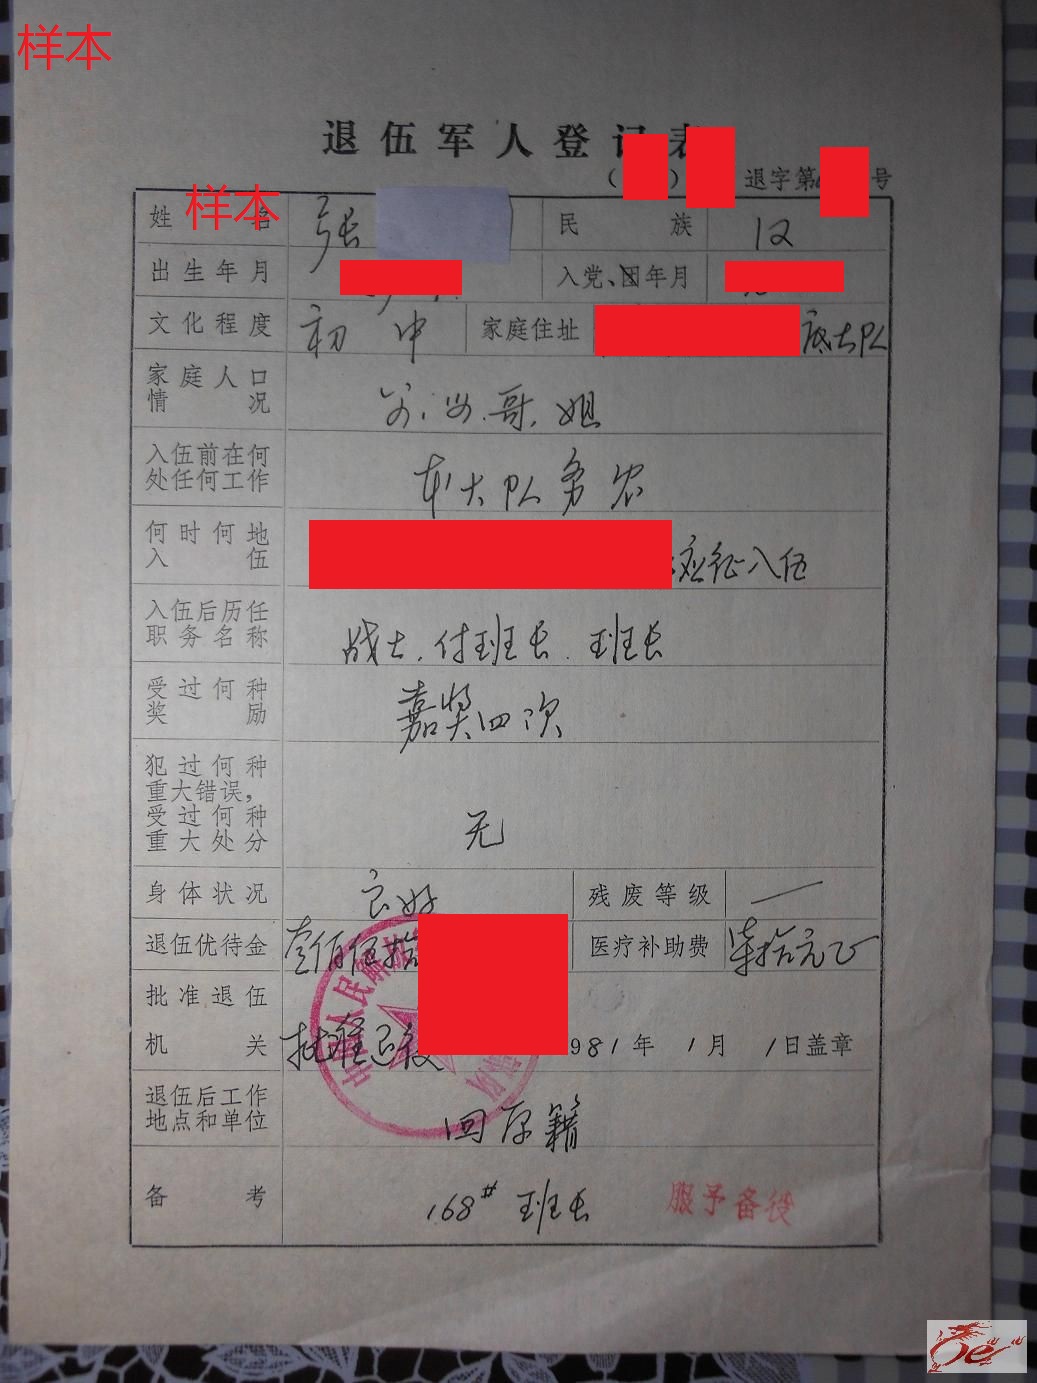 样本
退伍军人登记表
( ) 退字第 号
姓名 张 民族 汉
样本
出生年月 入党、团年月
文化程度 初中 家庭住址 底大队
家庭人口
情况 父.母.哥.姐
入伍前在何
处任何工作 本大队务农
何时何地
入伍 应征入伍
入伍后历任
职务名称 战士.付班长.班长
受过何种
奖励 嘉奖四次
犯过何种
重大错误,
受过何种
重大处分 无
身体状况 良好 残废等级 一
退伍优待金 壹佰伍拾 医疗补助费 柒拾元正
批准退伍
机关 批准退役 981年1月1日盖章
中国人民解放 部队
退伍后工作
地点和单位 回原籍
备考 168# 班长 服予备役